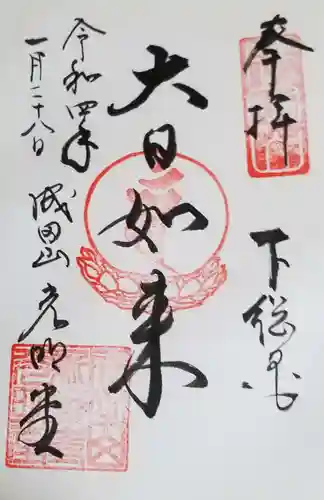 奉拝
下総国
大日如来
令和四年
一月二十八日
成田山 光明堂